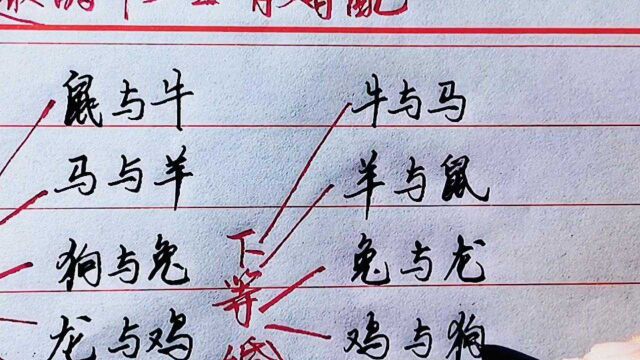 鼠与牛
马与羊
狗与兔
龙与鸡
下等婚
牛与马
羊与鼠
兔与龙
鸡与狗